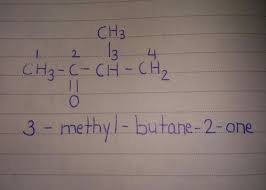 CH3
1 2 3 4
CH3-C-CH-CH2
O
3-methyl-butane-2-one